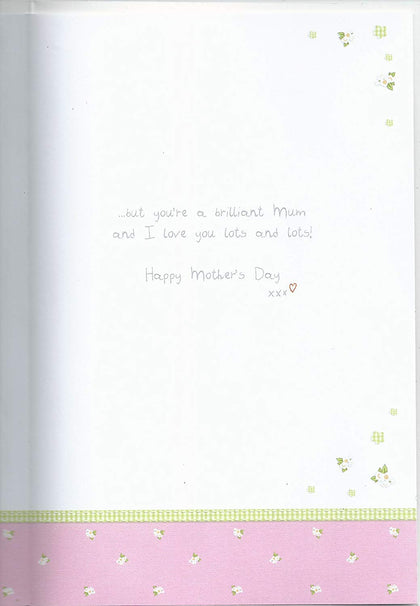 ...but you're a brilliant Mum
and I love you lots and lots!
Happy Mother's Day
xxx